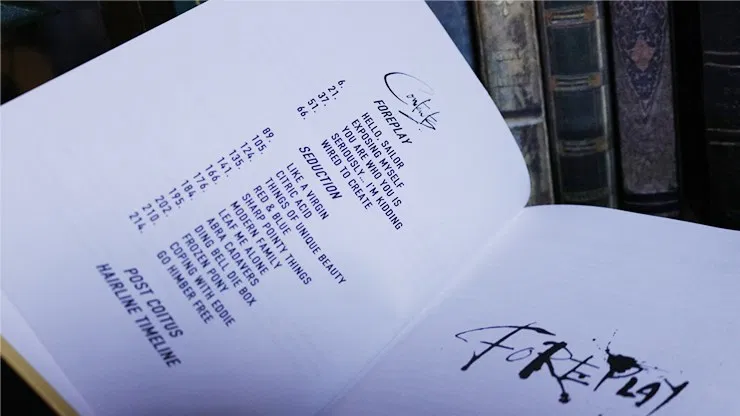 Contents
FOREPLAY
6. HELLO, SAILOR
21. EXPOSING MYSELF
37. YOU ARE WHO YOU IS
51. SERIOUSLY... I'M KIDDING
66. WIRED TO CREATE
SEDUCTION
89. LIKE A VIRGIN
105. CITRIC ACID
124. THINGS OF UNIQUE BEAUTY
135. RED & BLUE
141. SHARP POINTY THINGS
166. MODERN FAMILY
176. LEAF ME ALONE
184. ABRA CADAVERS
195. DING BELL DIE BOX
202. FROZEN PONY
210. COPING WITH EDDIE
214. GO HIMBER FREE
POST COITUS
HAIRLINE TIMELINE
FOREPLAY